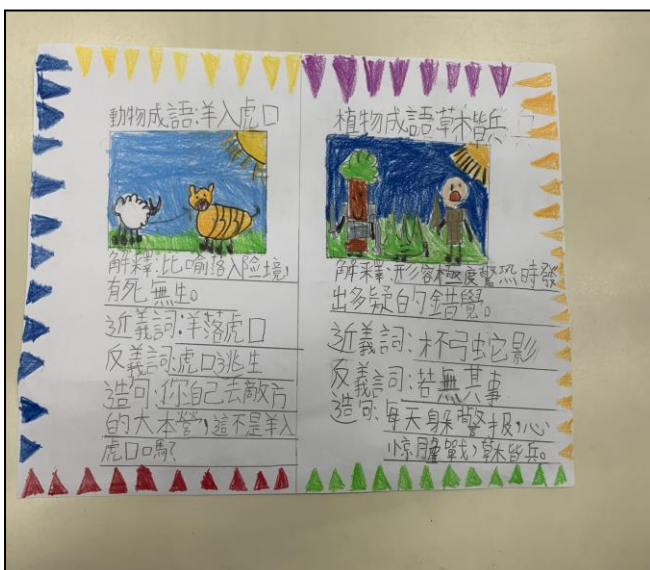 動物成語:羊入虎口
解釋:比喻落入險境,
有死無生。
近義詞:羊落虎口
反義詞:虎口逃生
造句:你自己去敵方
的大本營,這不是羊入
虎口嗎?
植物成語:草木皆兵
解釋:形容極度驚恐時發
出多疑的錯覺。
近義詞:杯弓蛇影
反義詞:若無其事
造句:每天躲警报,心
惊膽戰,草木皆兵。